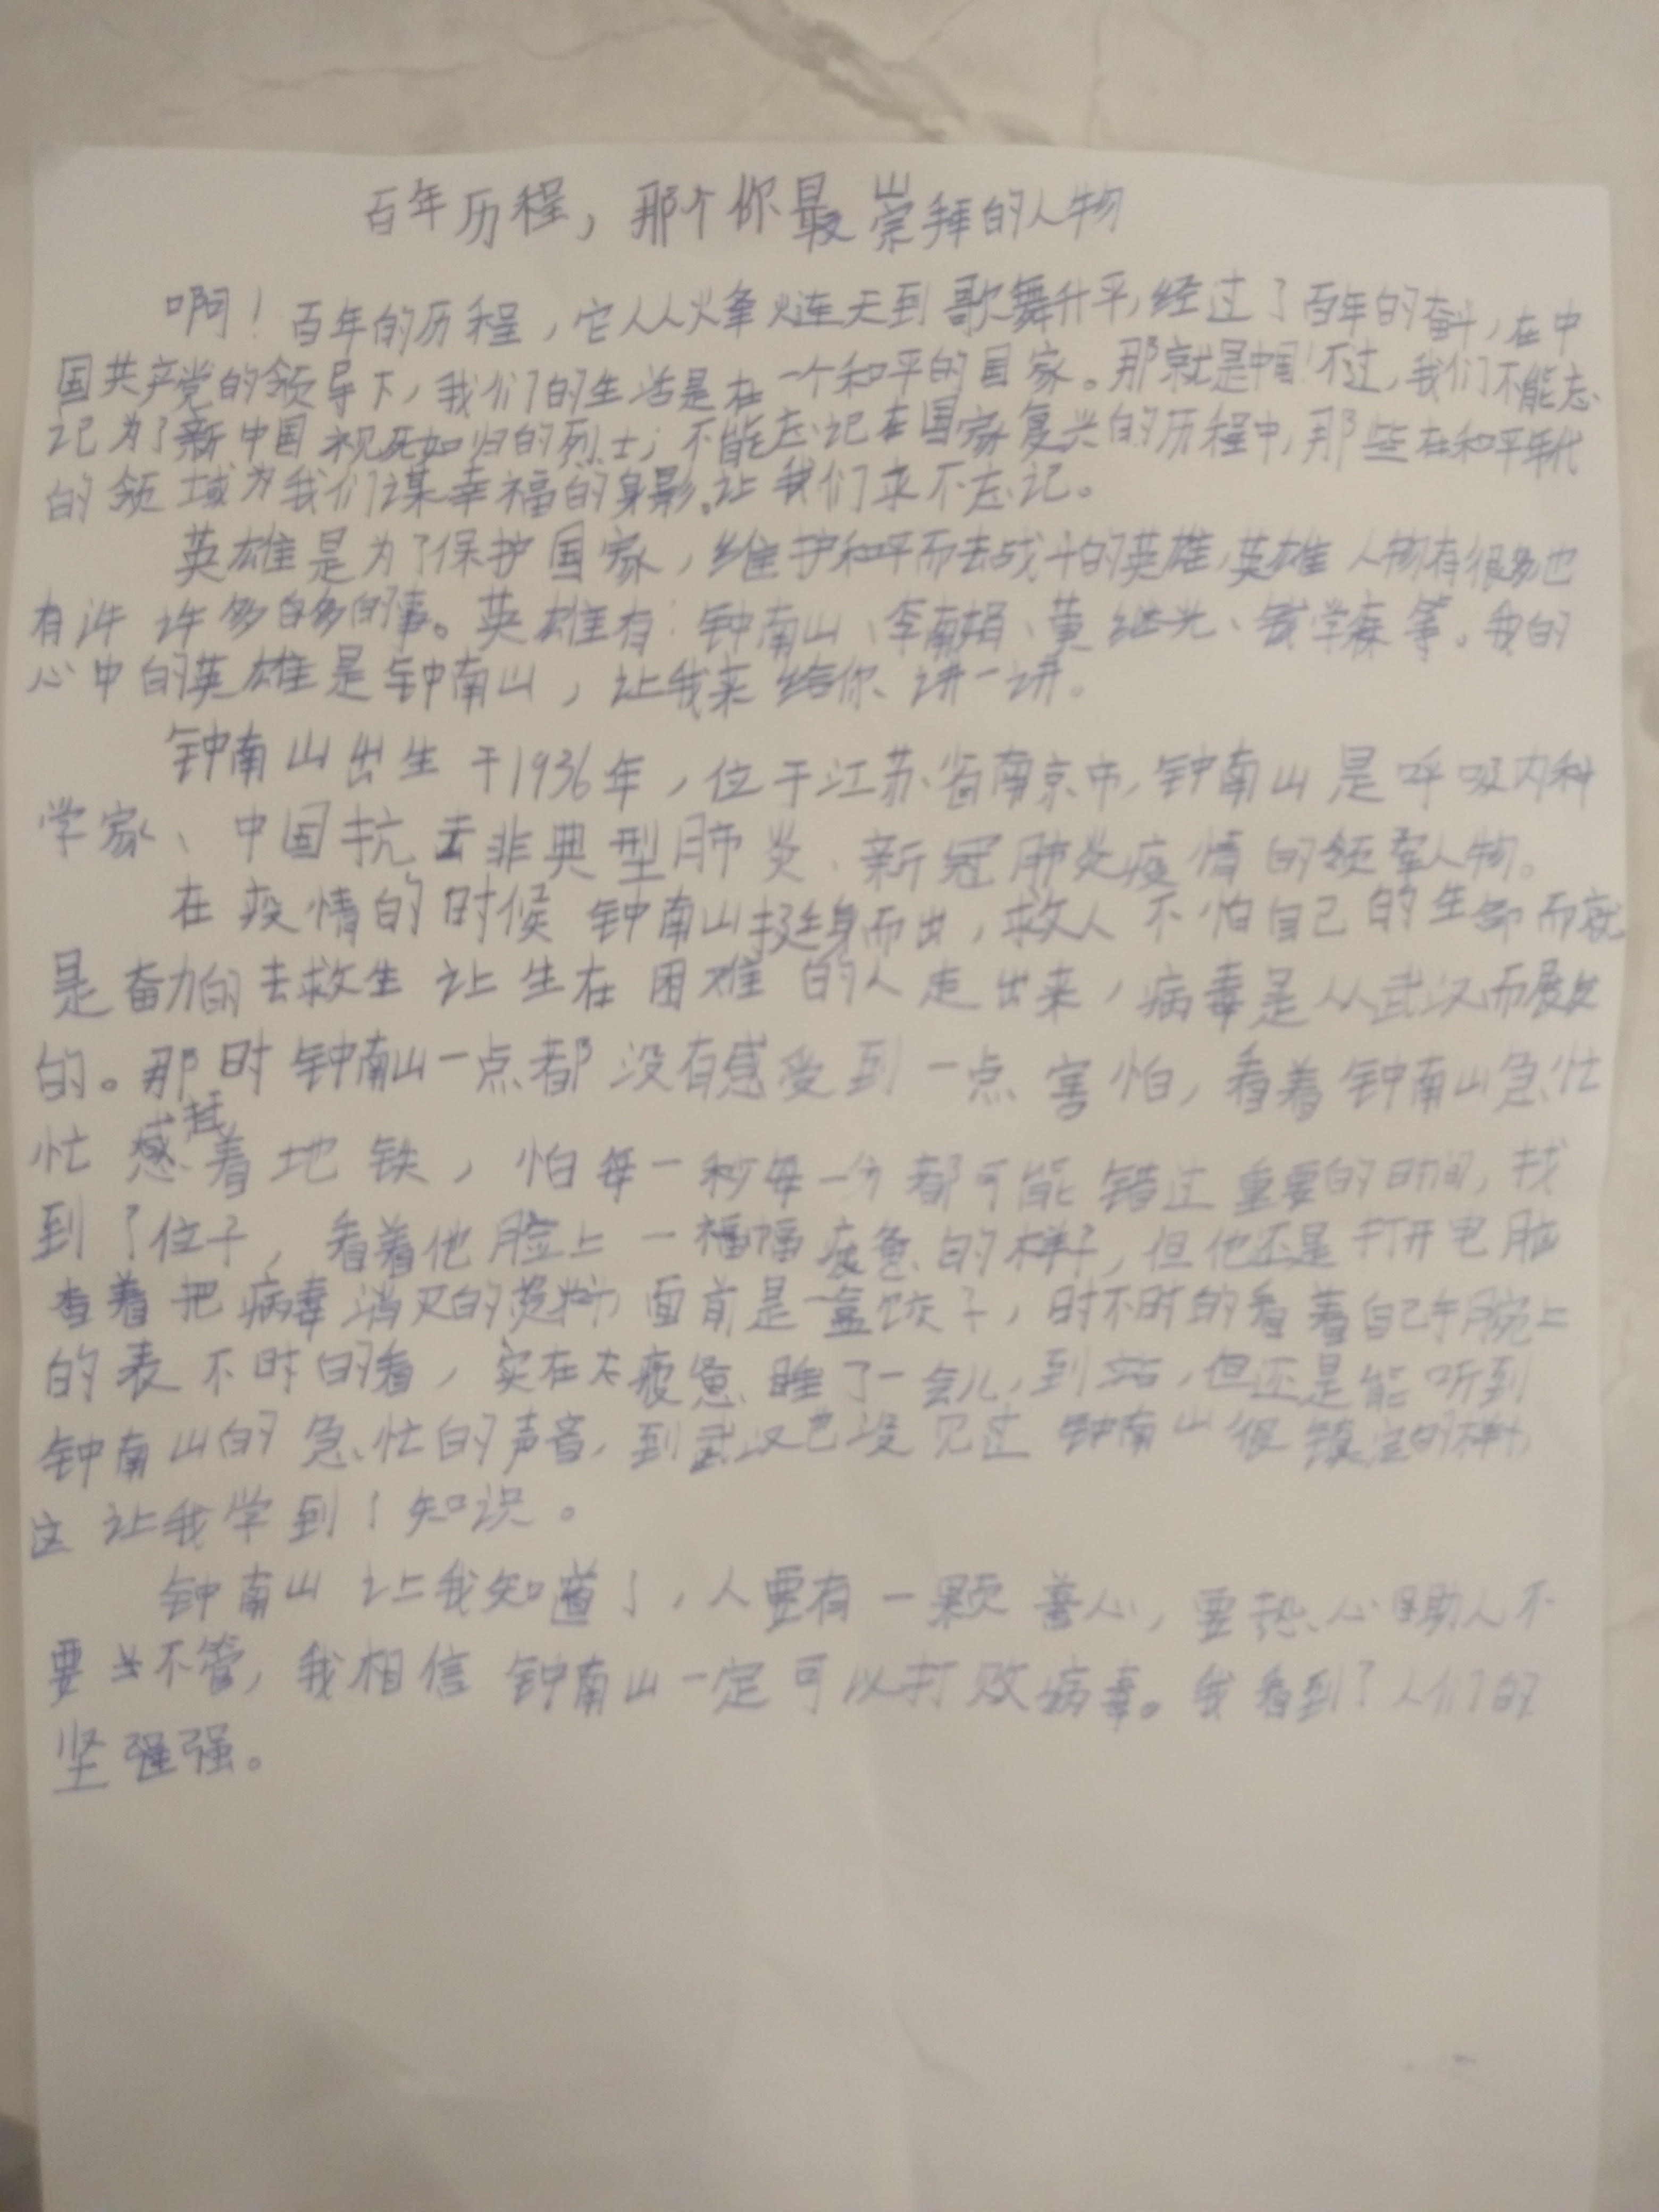 百年历程，那个你最崇拜的人物
啊！百年的历程，它从烽火连天到歌舞升平，经过了百年的奋斗，在中
国共产党的领导下，我们的生活是在一个和平的国家。那就是中国！不过，我们不能忘
记为了新中国视死如归的烈士；不能忘记在国家复兴的历程中，那些在和平年代
的领域为我们谋幸福的身影。让我们永不忘记。
英雄是为了保护国家，维护和平而去战斗的英雄，英雄人物有很多也
有许许多多的事。英雄有：钟南山、李南娟、黄继光、钱学森等。我的
心中的英雄是钟南山，让我来给你讲一讲。
钟南山出生于1936年，位于江苏省南京市，钟南山是呼吸内科
学家、中国抗击非典型肺炎、新冠肺炎疫情的领军人物。
在疫情的时候钟南山挺身而出，救人不怕自己的生命而就
是奋力的去救生让生在困难的人走出来，病毒是从武汉而
的。那时钟南山一点都没有感受到一点害怕，看着钟南山急忙
忙赶着地铁，怕每一秒每一分都可能错过重要的时间，找
到了位子，看着他脸上一幅幅疲惫的样子，但他还是打开电脑
查着把病毒消灭的资料，面前是一盒饺子，时不时的看着自己手腕上
的表不时的看，实在太疲惫睡了一会儿，到站，但还是能听到
钟南山的急忙的声音，到武汉也没见过钟南山很镇定的样子，
这让我学到了知识。
钟南山让我知道了，人要有一颗善心，要热心助人不
要当不管，我相信钟南山一定可以打败病毒。我看到了人们的
坚强。